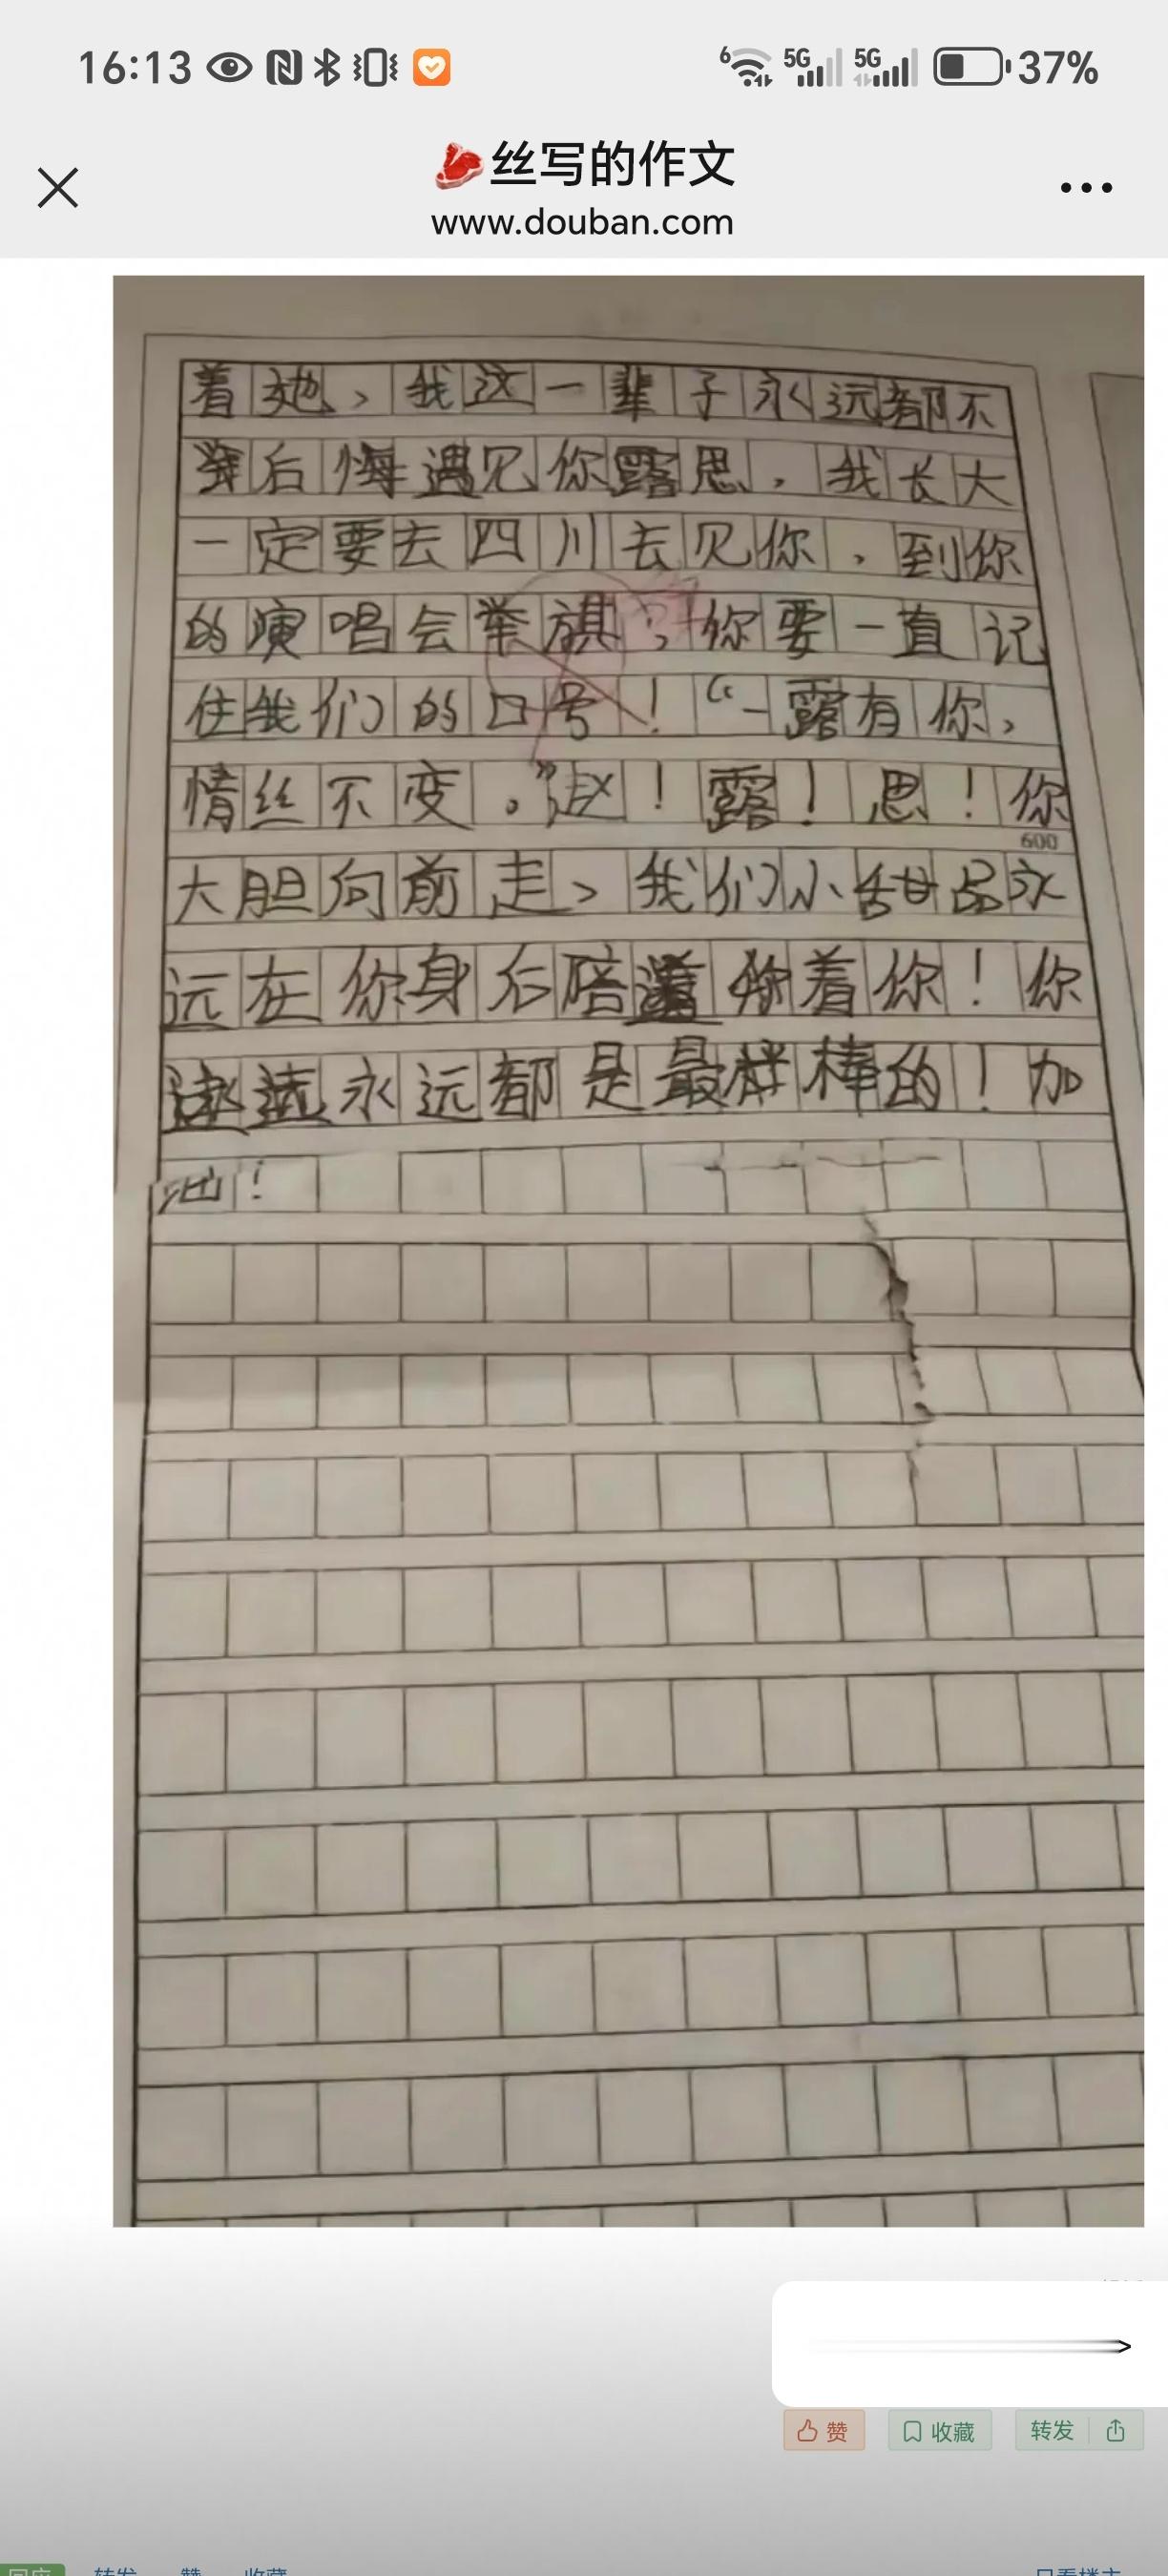 16:13
6 5G 5G 37%
丝写的作文
www.douban.com
着她，我这一辈子永远都不
后悔遇见你露思，我长大
一定要去四川去见你，到你
的演唱会举旗，你要一直记
住我们的口号！“一露有你，
情丝不变。”赵！露！思！你
600
大胆向前走，我们小甜品永
远在你身后陪着你！你
永远都是最棒的！加
油！
赞 收藏 转发
转发 赞 收藏 只看楼主